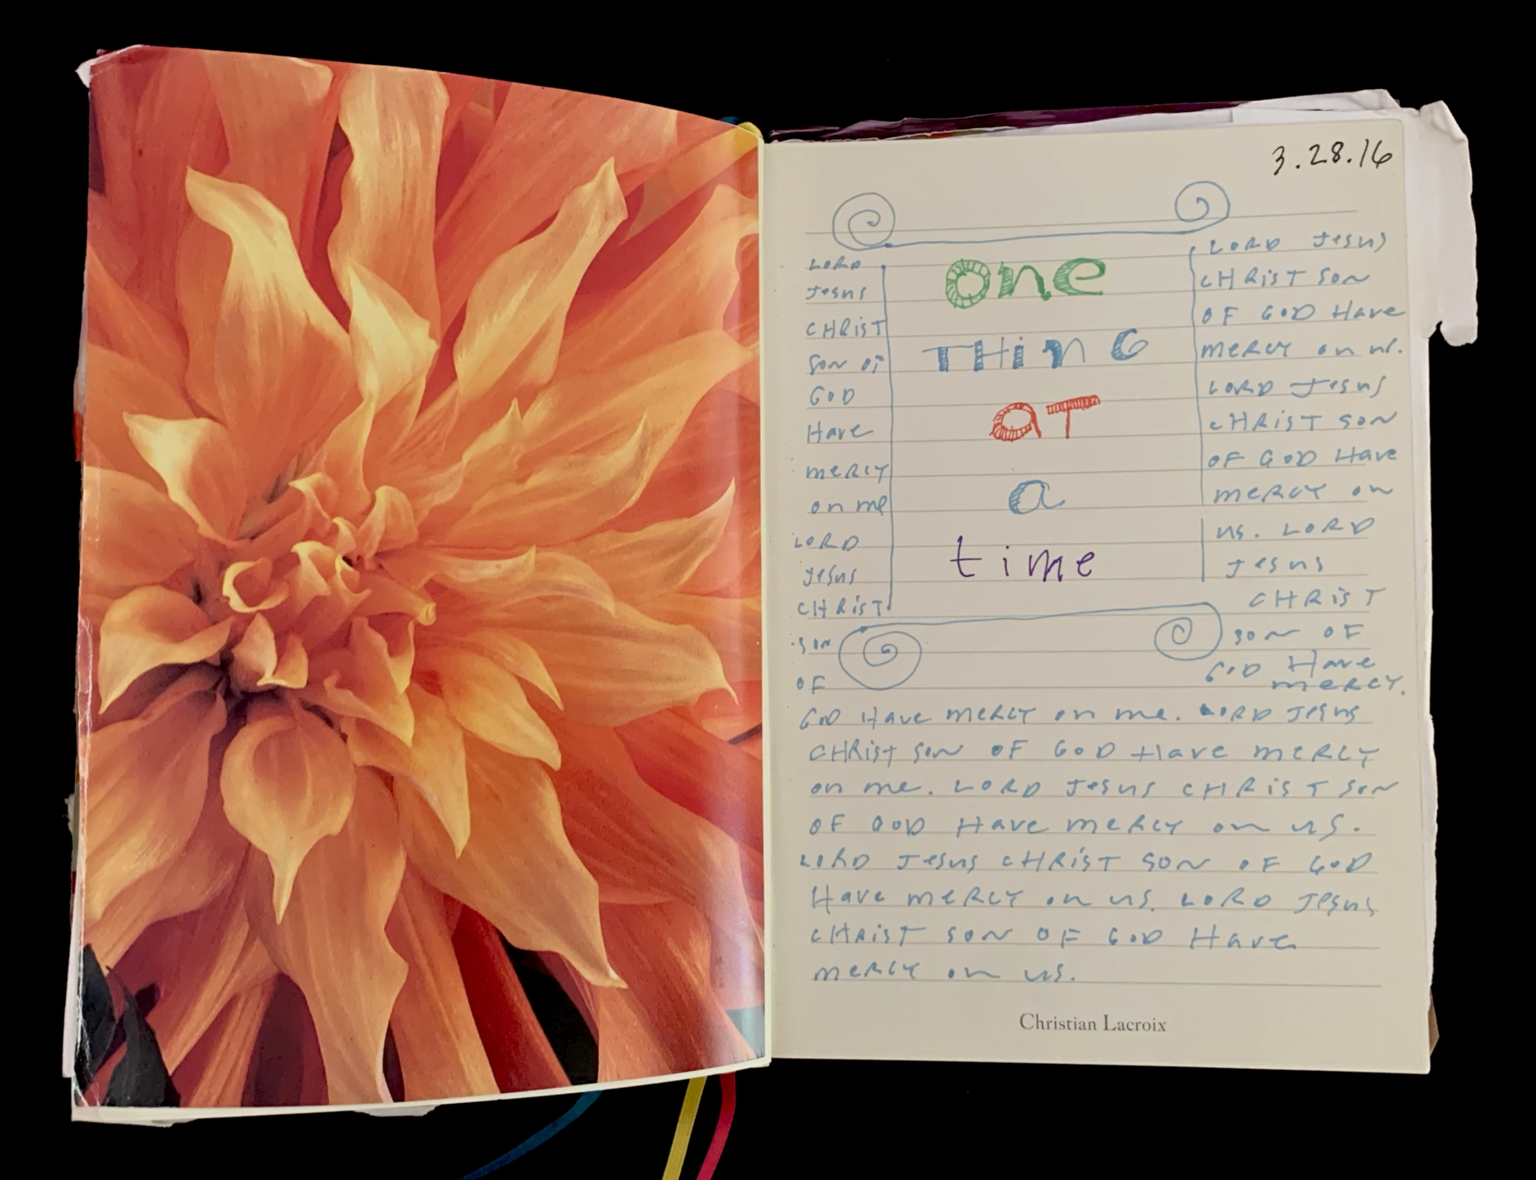 3.28.16
LORD
Jesus
CHRIST
son of
GOD
Have
mercy
on me
LORD
Jesus
CHRIST
son
OF
one
THING
at
a
time
LORD Jesus
CHRIST son
OF GOD Have
mercy on us.
LORD Jesus
CHRIST son
OF GOD Have
mercy on
us. LORD
Jesus
CHRIST
son OF
GOD Have
mercy.
GOD Have mercy on me. LORD Jesus
CHRIST son OF GOD Have mercy
on me. LORD Jesus CHRIST son
OF GOD Have mercy on us.
LORD Jesus CHRIST son OF GOD
Have mercy on us. LORD Jesus
CHRIST son OF GOD Have
mercy on us.
Christian Lacroix